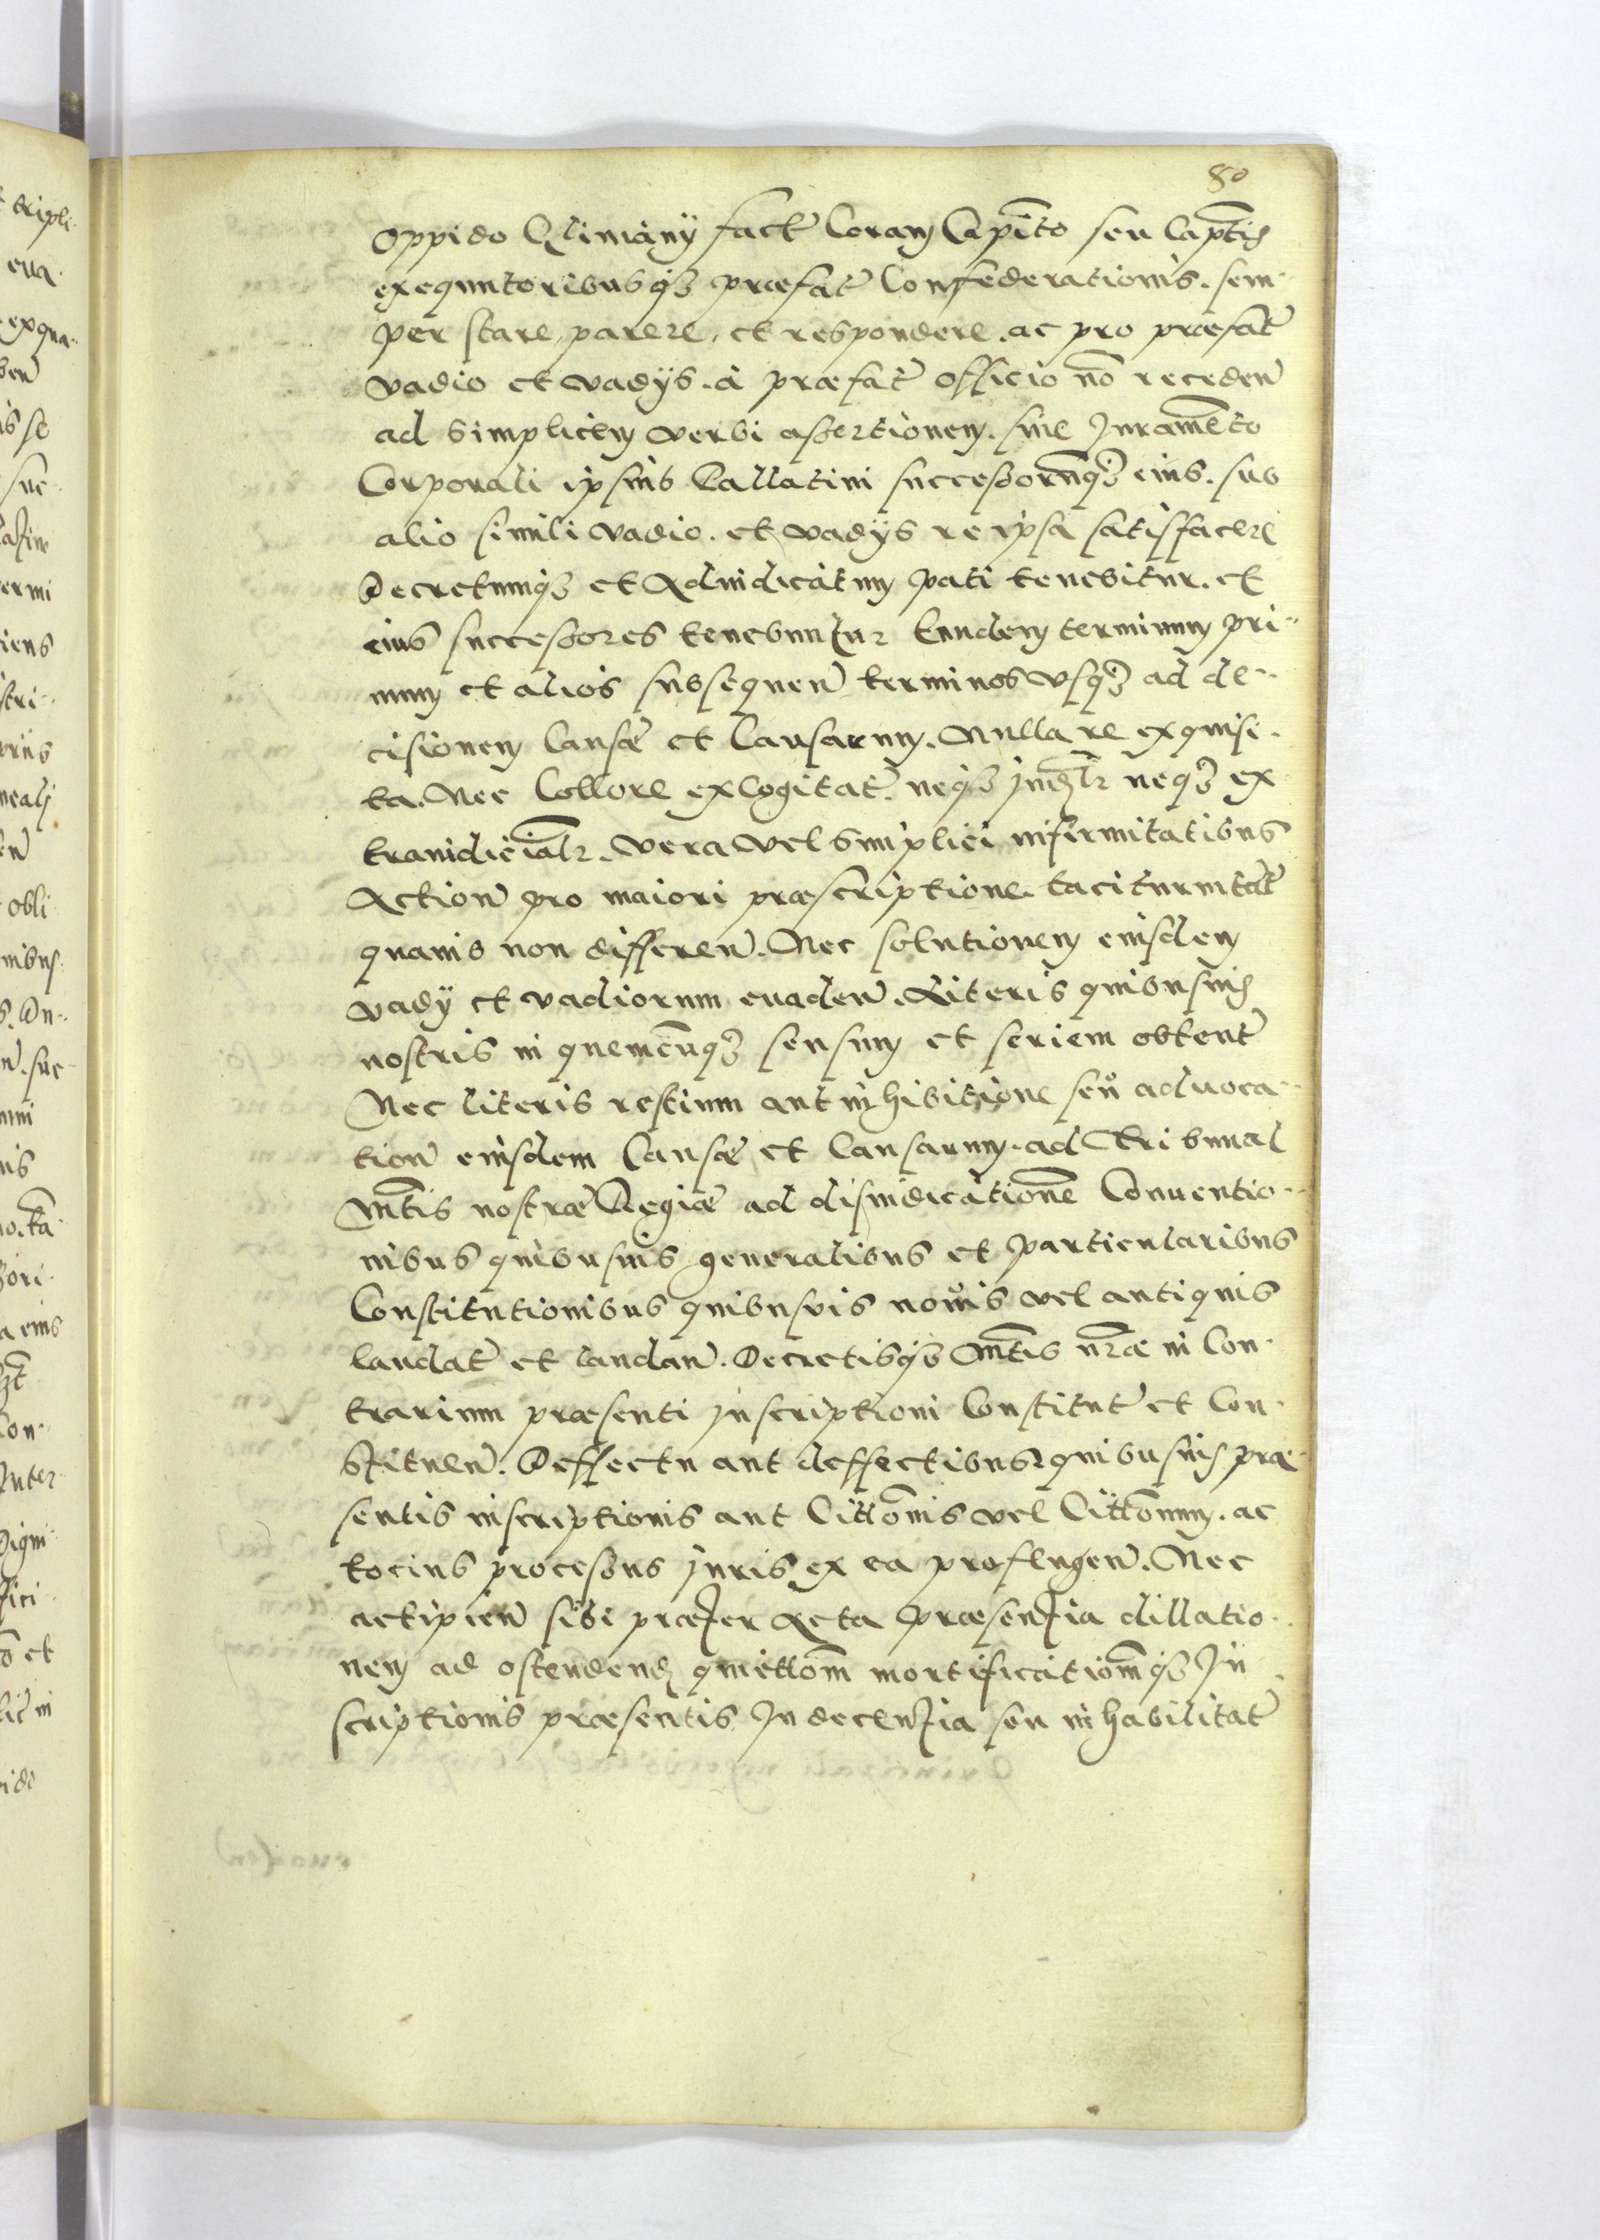 80
oppido Qlimany fact Coram Capito seu Captis
exequutoribusqz præfat Confederationis. sem-
per stare, parere, et respondere. ac pro præfat
vadio et vadÿs. à præfat officio no receden
ad simplicem verbi assertionem. sine Juramento
Corporali ipsius Pallatini successorumqz eius. sub
alio simili vadio. et vadÿs re ipsa satisfacere
Decretumqz et Adiudicatum pati tenebitur. et
eius successores tenebuntur Eundem terminum pri-
mum et alios subsequen terminos vsqz ad de-
cisionem Causæ et Causarum. Nulla re exquisi-
ta. Nec Collore excogitat. neqz judlr neqz ex
traiudicialr. vera vel simplici infirmitatibus
Action pro maiori præscriptione. taciturnitat
quauis non differen. Nec solutionem eiusdem
vadÿ et vadiorum euaden. Literis quibusuis
nostris in quemcunqz sensum et seriem obtent
Nec literis restium aut inhibitione seu aduoca-
tion eiusdem Causæ et Causarum. ad Tribunal
Mtis nostræ Regiæ ad disiudicatione Conuentio-
nibus quibusuis generalibus et particularibus
Constitutionibus quibusuis nouis vel antiquis
laudat et laudan. Decretisqz Mtis nræ in Con-
trarium præsenti jnscriptioni Constitut et Con-
stituen. Deffectu aut deffectibus quibusuis præ-
sentis inscriptionis aut Cittonis vel Cittonum. ac
tocius processus juris ex ea proflugen. Nec
accipien sibi præter Acta præsentia dillatio-
nem ad ostendend quietto͞m mortificatiomqz Jn
scriptionis præsentis Jndecentia seu inhabilitat